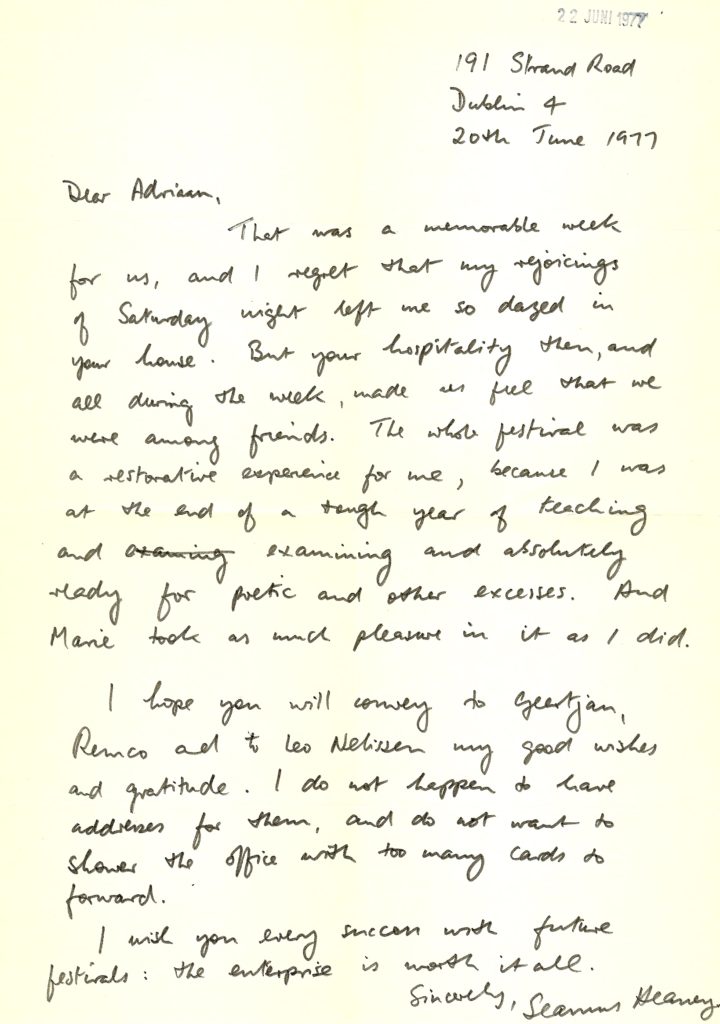 22 JUNI 1977
191 Strand Road
Dublin 4
20th June 1977
Dear Adriaan,
That was a memorable week
for us, and I regret that my rejoicings
of Saturday night left me so dazed in
your house. But your hospitality then, and
all during the week, made us feel that we
were among friends. The whole festival was
a restorative experience for me, because I was
at the end of a tough year of teaching
and examing examining and absolutely
ready for poetic and other excesses. And
Marie took as much pleasure in it as I did.
I hope you will convey to Geertjan,
Remco and to Leo Nelissen my good wishes
and gratitude. I do not happen to have
addresses for them, and do not want to
shower the office with too many cards to
forward.
I wish you every success with future
festivals: the enterprise is worth it all.
Sincerely, Seamus Heaney.